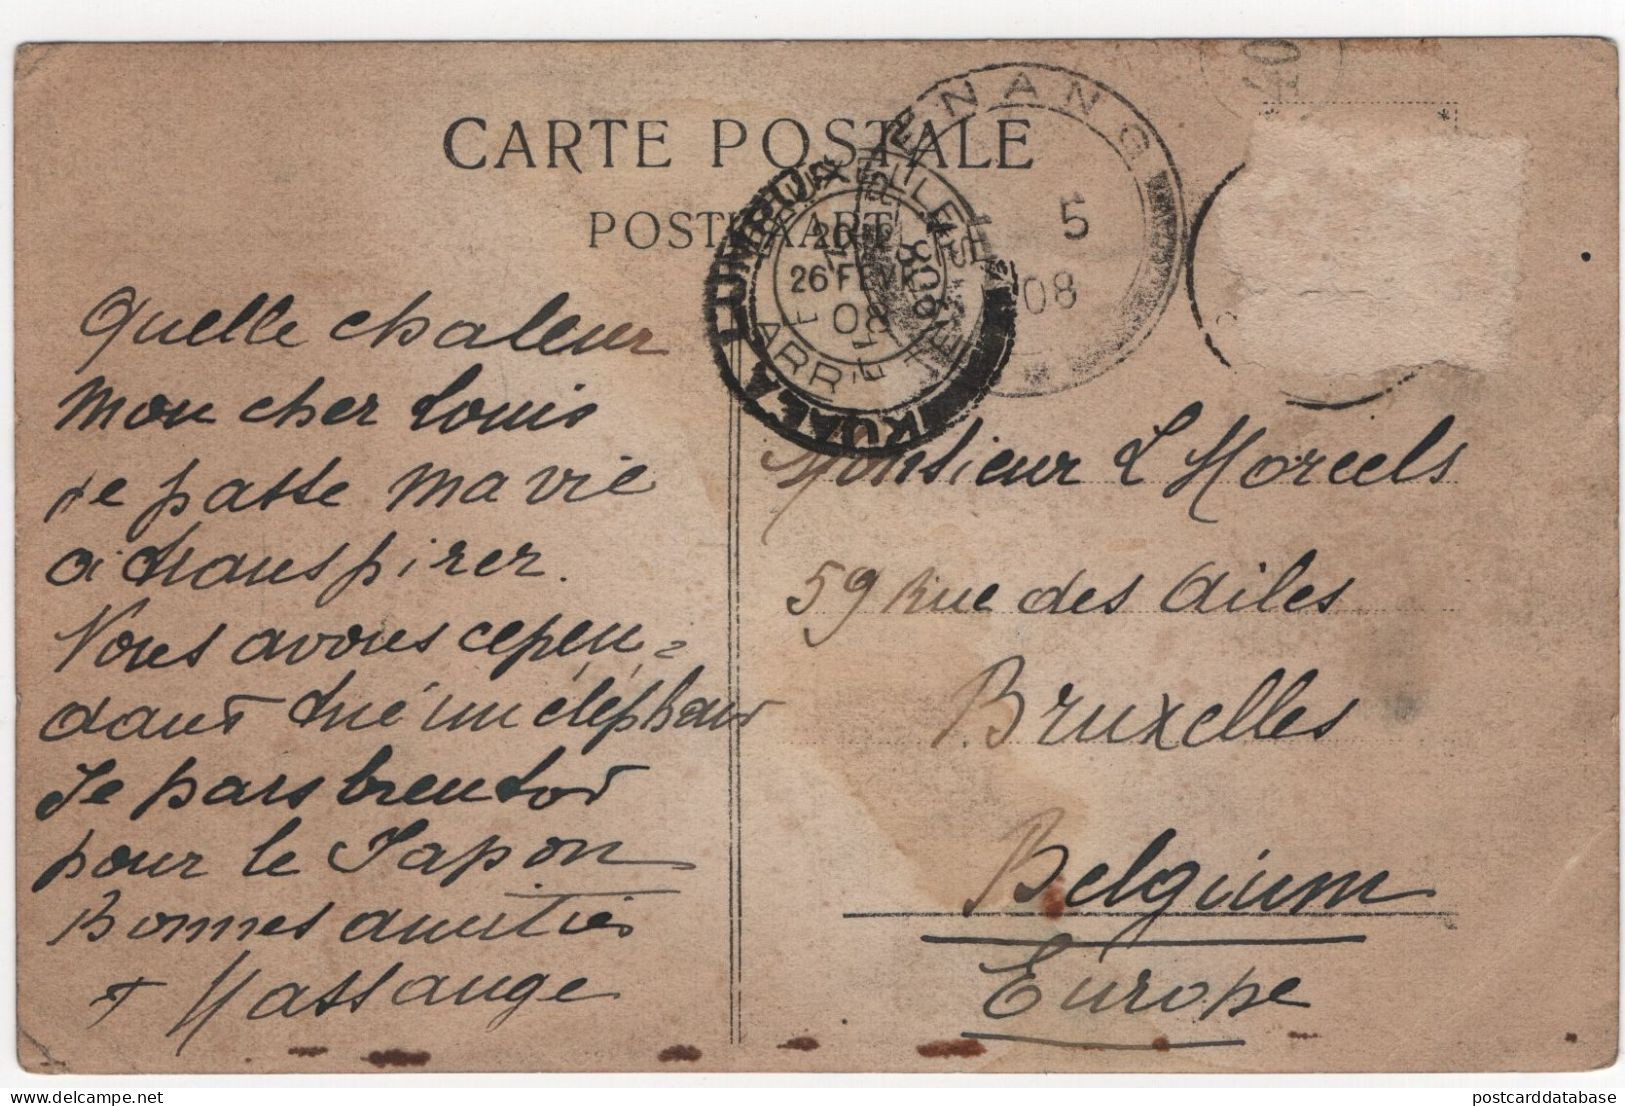 CARTE POSTALE
POST CARD
Quelle chaleur
mon cher Louis
Je passe ma vie
à transpirer.
Nous avons cepen=
dant tué un éléphant
Je pars bientot
pour le Japon
Bonnes amitiés
Massange
Monsieur L Morcels
59 Rue des Ailes
Bruxelles
Belgium
Europe
PENANG
5
08
KUALA LUMPUR
26 FEVR
08
BRUXELLES
ARR
postcarddatabase